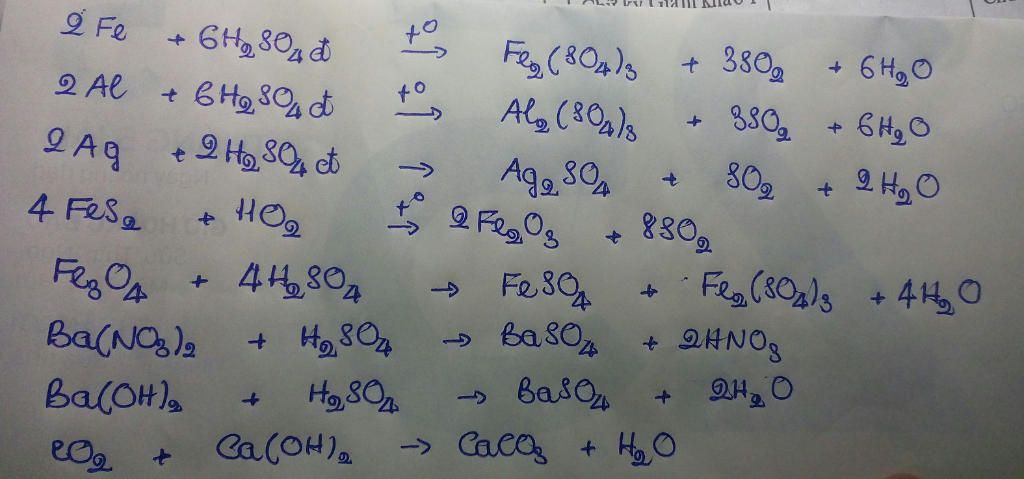 2Fe + 6H₂SO₄đ →(t°) Fe₂(SO₄)₃ + 3SO₂ + 6H₂O
2Al + 6H₂SO₄đ →(t°) Al₂(SO₄)₃ + 3SO₂ + 6H₂O
2Ag + 2H₂SO₄đ → Ag₂SO₄ + SO₂ + 2H₂O
4FeS₂ + 11O₂ →(t°) 2Fe₂O₃ + 8SO₂
Fe₃O₄ + 4H₂SO₄ → FeSO₄ + Fe₂(SO₄)₃ + 4H₂O
Ba(NO₃)₂ + H₂SO₄ → BaSO₄ + 2HNO₃
Ba(OH)₂ + H₂SO₄ → BaSO₄ + 2H₂O
CO₂ + Ca(OH)₂ → CaCO₃ + H₂O